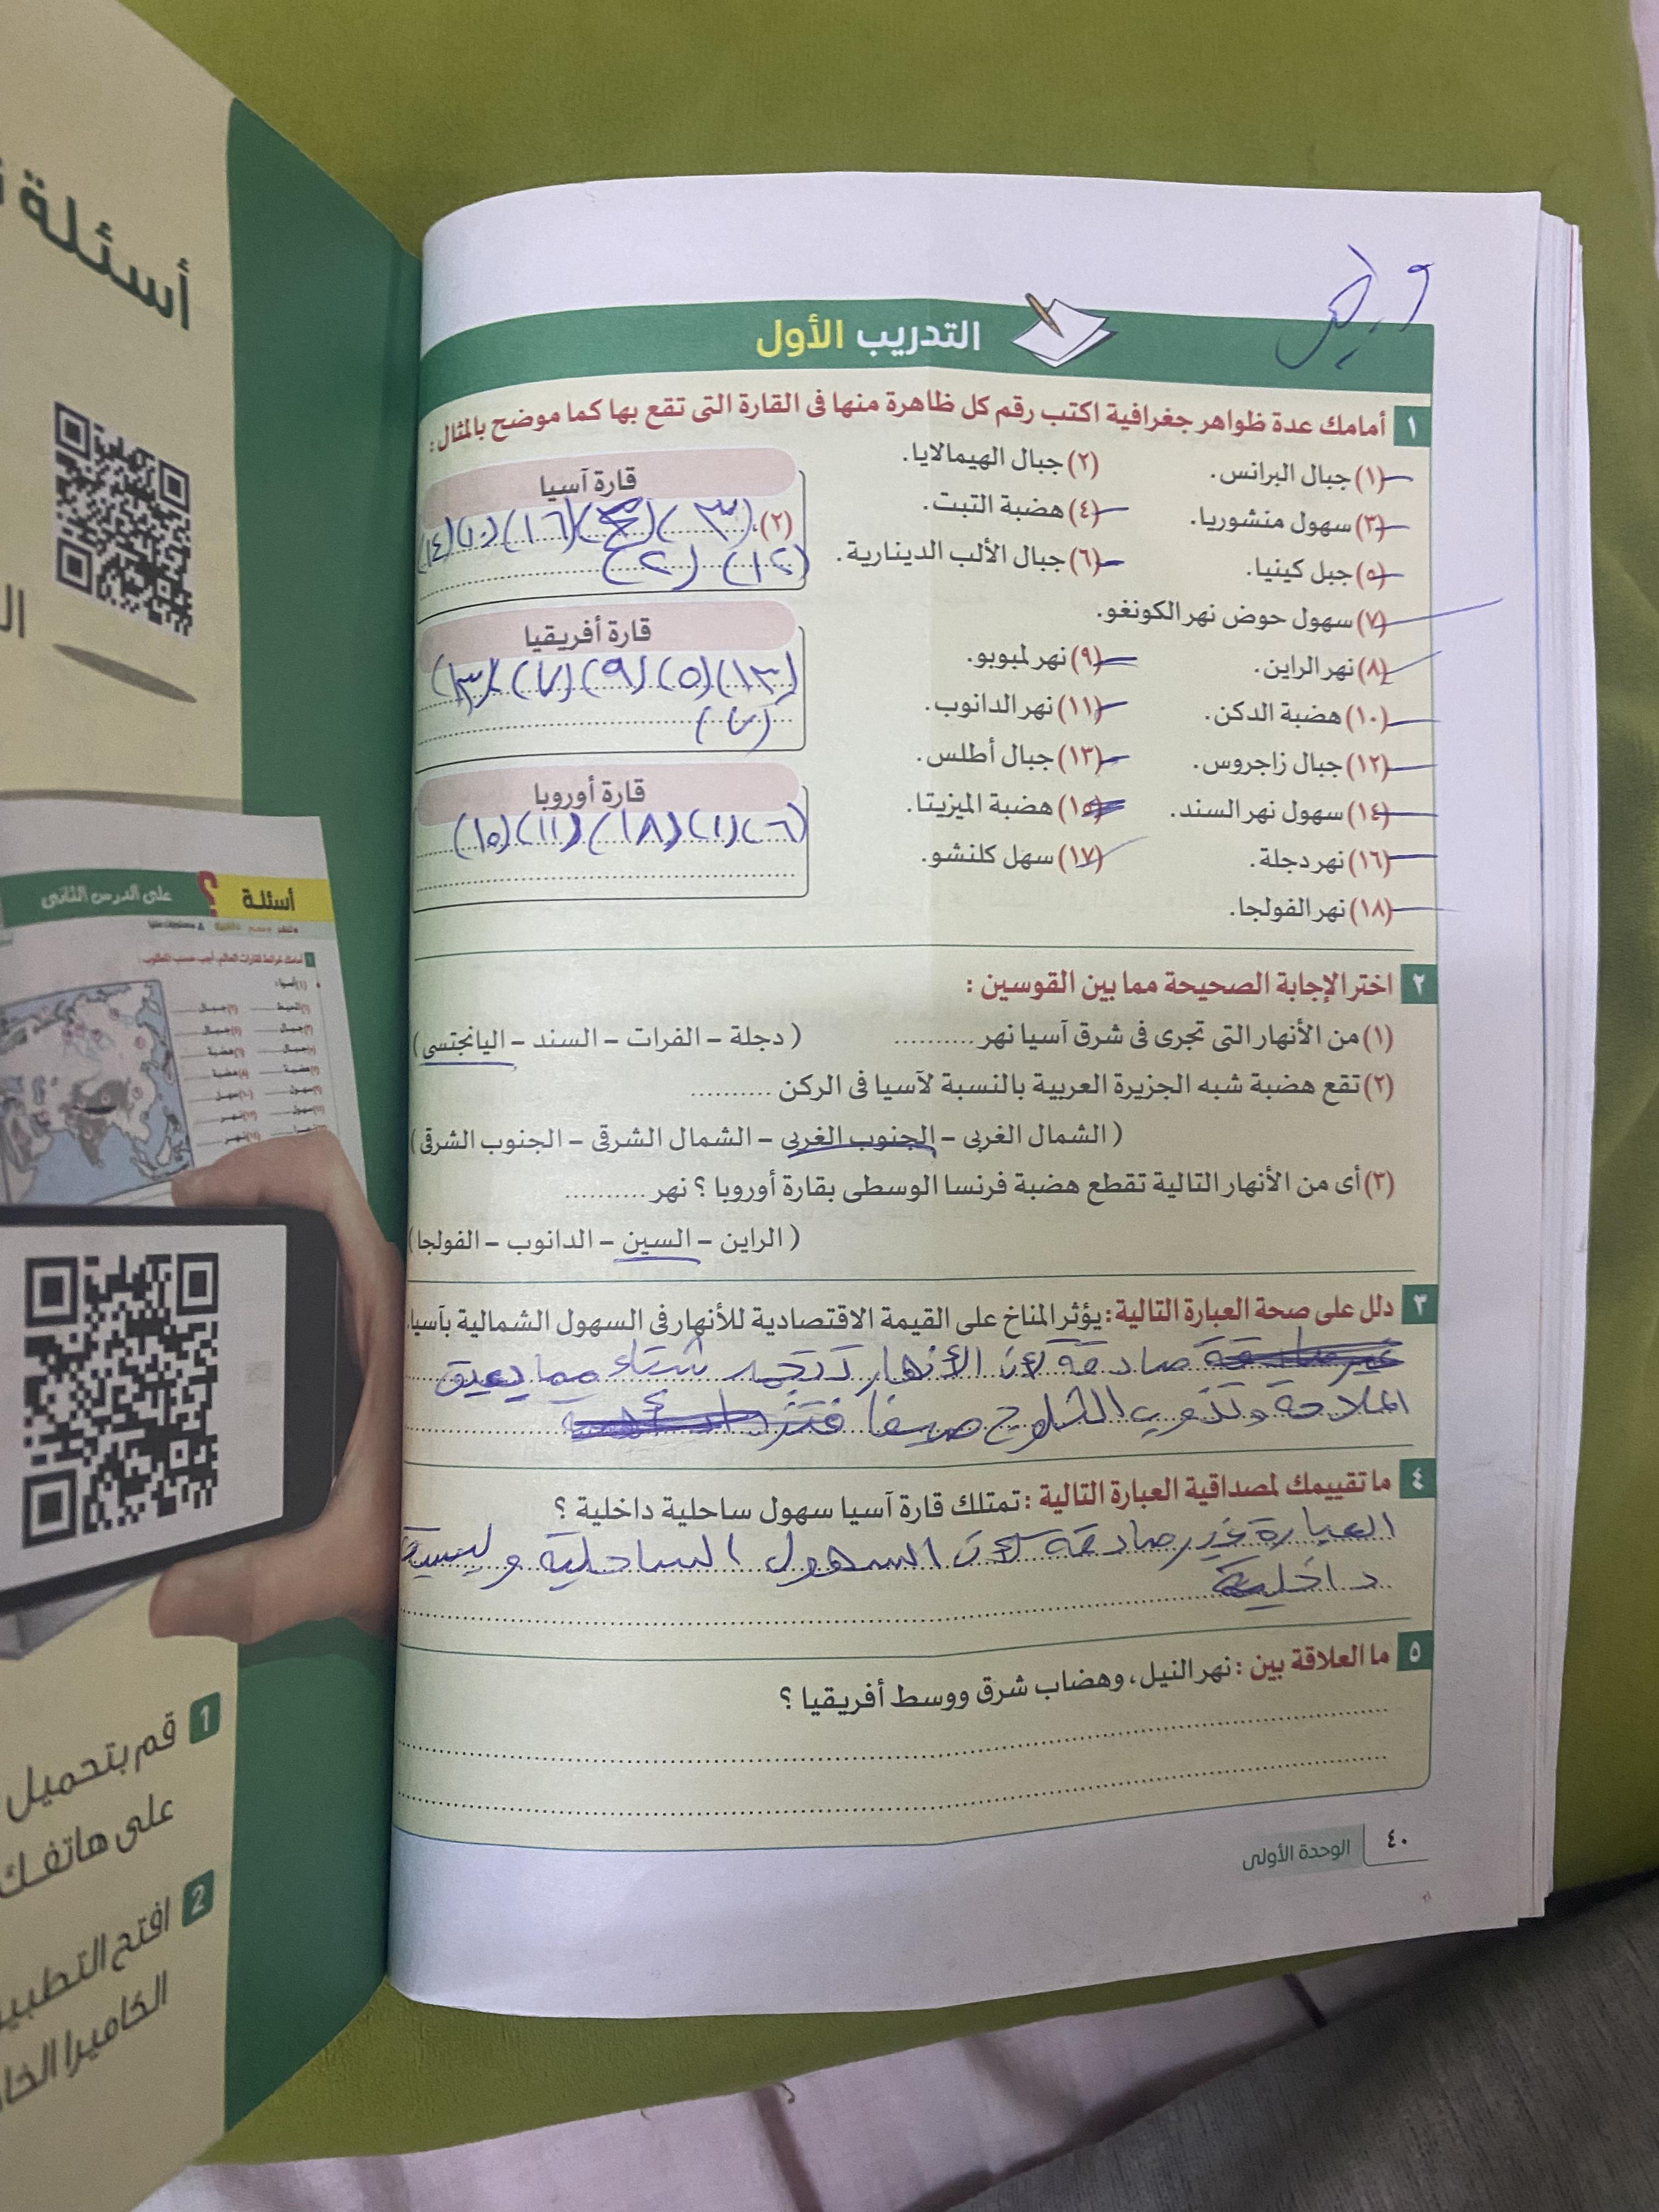 أسئلة
التدريب الأول
١ أمامك عدة ظواهر جغرافية اكتب رقم كل ظاهرة منها فى القارة التى تقع بها كما موضح بالمثال :
(١) جبال البرانس. (٢) جبال الهيمالايا.
(٣) سهول منشوريا. (٤) هضبة التبت.
(٥) جبل كينيا. (٦) جبال الألب الدينارية.
(٧) سهول حوض نهر الكونغو.
(٨) نهر الراين. (٩) نهر لمبوبو.
(١٠) هضبة الدكن. (١١) نهر الدانوب.
(١٢) جبال زاجروس. (١٣) جبال أطلس.
(١٤) سهول نهر السند. (١٥) هضبة الميزيتا.
(١٦) نهر دجلة. (١٧) سهل كلنشو.
(١٨) نهر الفولجا.
قارة آسيا
(٢). (٣) (١٦) (١٠) (١٤)
(١٢) (٢)
قارة أفريقيا
(١٣) (٥) (٩) (٧) (٣)
(٧)
قارة أوروبا
(٦) (١) (١٨) (١١) (١٥)
٢ اختر الإجابة الصحيحة مما بين القوسين :
(١) من الأنهار التى تجرى فى شرق آسيا نهر .......... ( دجلة – الفرات – السند – اليانجتسى )
(٢) تقع هضبة شبه الجزيرة العربية بالنسبة لآسيا فى الركن ..........
( الشمال الغربى – الجنوب الغربى – الشمال الشرقى – الجنوب الشرقى )
(٣) أى من الأنهار التالية تقطع هضبة فرنسا الوسطى بقارة أوروبا ؟ نهر ..........
( الراين – السين – الدانوب – الفولجا )
٣ دلل على صحة العبارة التالية : يؤثر المناخ على القيمة الاقتصادية للأنهار فى السهول الشمالية بآسيا.
صادقة لأن الأنهار تتجمد شتاء مما يعيق
الملاحة وتذوب الثلوج صيفا فتزداد
٤ ما تقييمك لمصداقية العبارة التالية : تمتلك قارة آسيا سهول ساحلية داخلية ؟
العبارة غير صادقة لأن السهول الساحلية وليست
داخلية
٥ ما العلاقة بين : نهر النيل، وهضاب شرق ووسط أفريقيا ؟
٤٠ الوحدة الأولى
أسئلة ؟ على الدرس الثانى
1 قم بتحميل
على هاتفك
2 افتح التطبيق